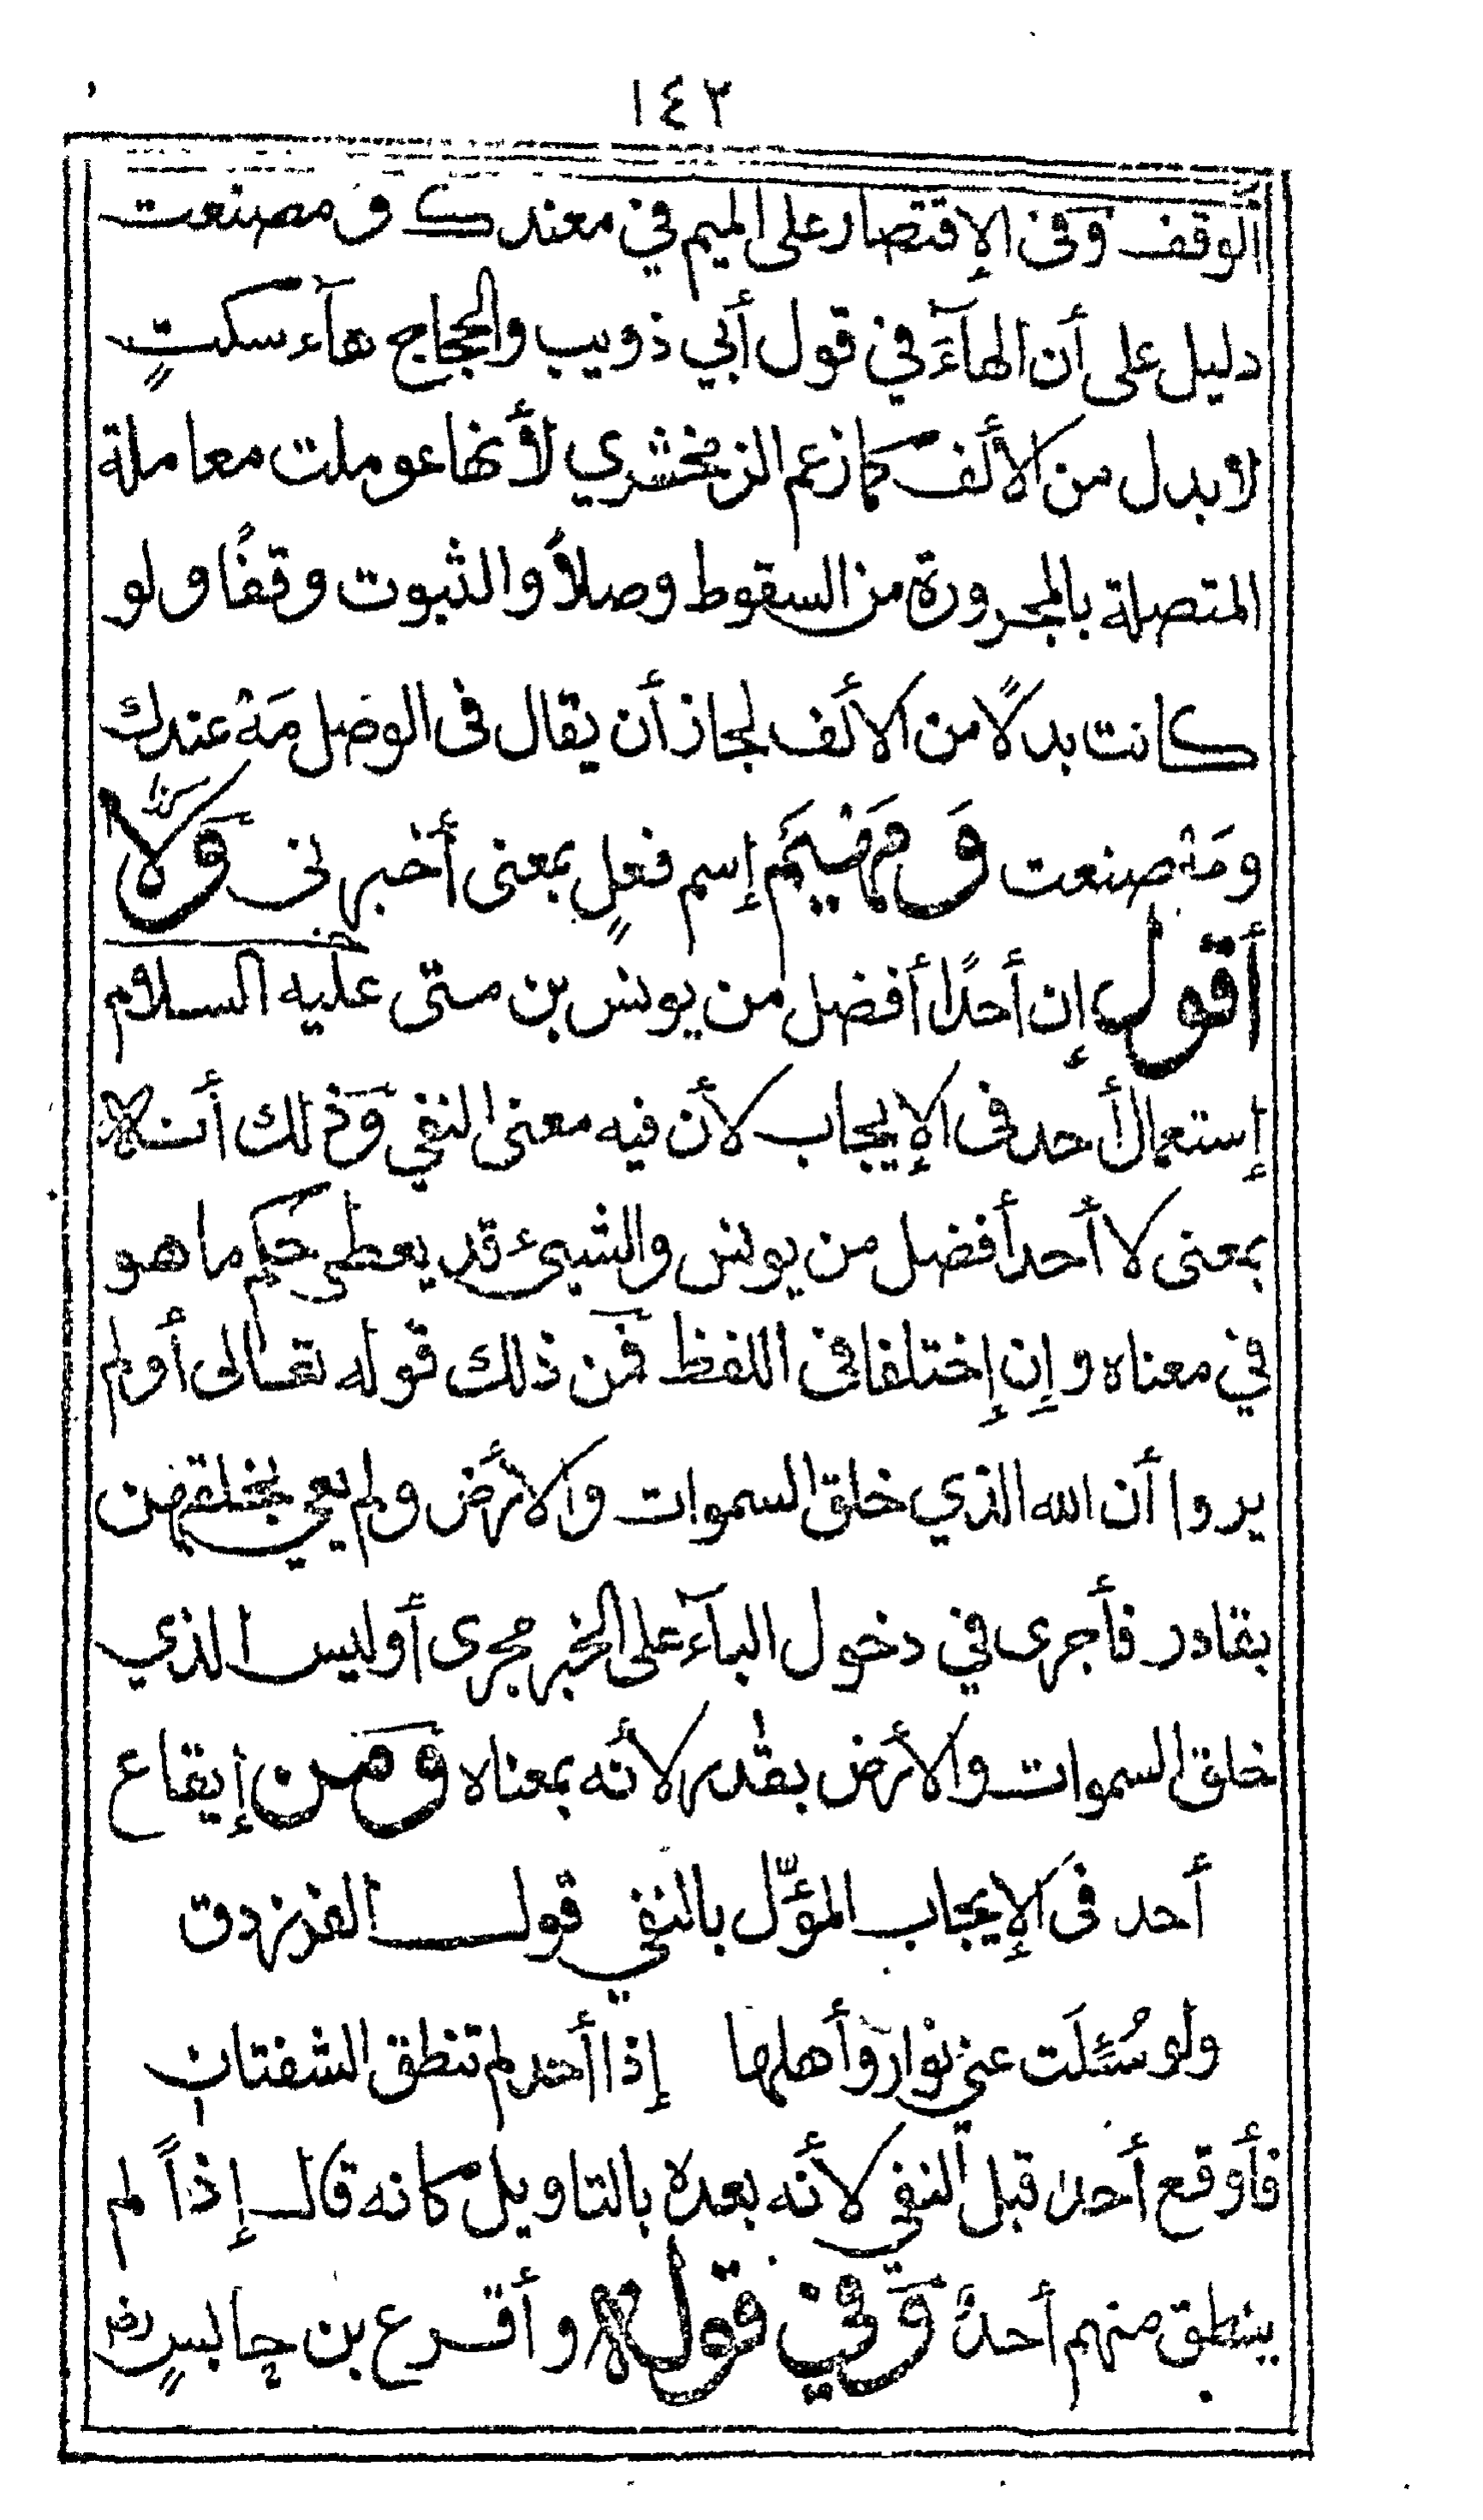 ١٤٢
الوقف وفى الإقتصار على الميم في معندك و مصنعت
دليل على أن الهآءَ في قول أبي ذويب والحجاج هآء سكتٍ
لا بدل من الألف كما زعم الزمخشري لأنها عوملت معاملة
المتصلة بالمجرورة من السقوط وصلاً والثبوت وقفًا ولو
كانت بدلًا من الألف لجاز أن يقال فى الوصل مَهْ عندك
ومَهْ صنعت وَمَهْيَم إسم فعلٍ بمعنى أخبرنى وَلَا
أقول إن أحدًا أفضل من يونس بن متى عليه السلام
إستعمال أحد فى الإيجاب لأن فيه معنى النفي وذلك أن
بمعنى لا أحد أفضل من يونس والشيئ قد يعطى حكم ما هو
في معناه وإن إختلفا فى اللفظ فمن ذلك قوله تعالى أولم
يروا أن الله الذي خلق السموات والأرض ولم يعي بخلقهن
بقادر فأجرى في دخول البآء على الخبر مجرى أوليس الذي
خلق السموات والأرض بقٰدر لأنه بمعناه ومن إيقاع
أحد فى الإيجاب المؤّل بالنفي قول الفرزدق
ولو سُئلَت عني نوار وأهلها إذا أحد لم تنطق الشفتان
فأوقع أحد قبل النفي لأنه بعده بالتاويل كانه قال إذاً لم
ينطق منهم أحدٌ وَفي قوله وأقرع بن حابسٍ رض